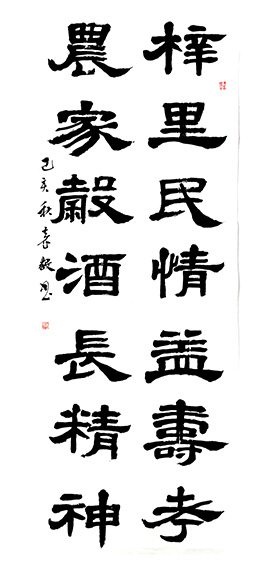 梓里民情益壽考
農家穀酒長精神
己亥秋袁毅